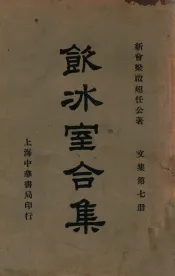 新會梁啟超任公著
文集第七冊
飲冰室合集
上海中華書局印行